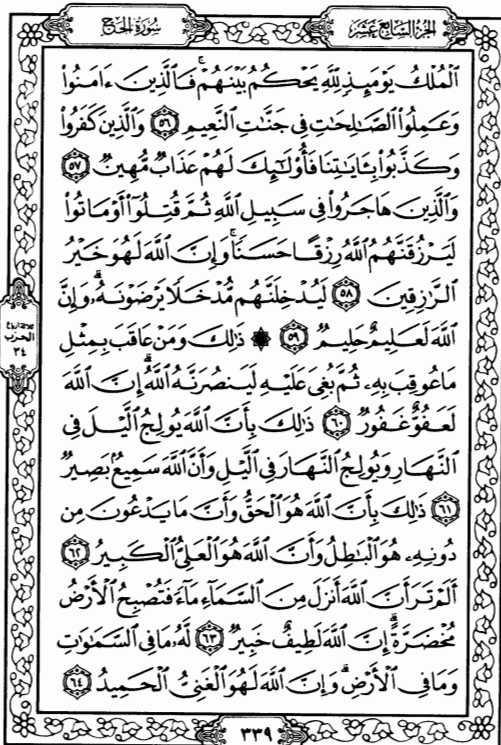 الجزء السابع عشر
سورة الحج
ٱلْمُلْكُ يَوْمَئِذٍ لِّلَّهِ يَحْكُمُ بَيْنَهُمْ ۚ فَٱلَّذِينَ ءَامَنُوا۟
وَعَمِلُوا۟ ٱلصَّٰلِحَٰتِ فِى جَنَّٰتِ ٱلنَّعِيمِ ٥٦ وَٱلَّذِينَ كَفَرُوا۟
وَكَذَّبُوا۟ بِـَٔايَٰتِنَا فَأُو۟لَٰٓئِكَ لَهُمْ عَذَابٌ مُّهِينٌ ٥٧
وَٱلَّذِينَ هَاجَرُوا۟ فِى سَبِيلِ ٱللَّهِ ثُمَّ قُتِلُوٓا۟ أَوْ مَاتُوا۟
لَيَرْزُقَنَّهُمُ ٱللَّهُ رِزْقًا حَسَنًا ۚ وَإِنَّ ٱللَّهَ لَهُوَ خَيْرُ
ٱلرَّٰزِقِينَ ٥٨ لَيُدْخِلَنَّهُم مُّدْخَلًا يَرْضَوْنَهُۥ ۗ وَإِنَّ
ٱللَّهَ لَعَلِيمٌ حَلِيمٌ ٥٩ ۞ ذَٰلِكَ وَمَنْ عَاقَبَ بِمِثْلِ
مَا عُوقِبَ بِهِۦ ثُمَّ بُغِىَ عَلَيْهِ لَيَنصُرَنَّهُ ٱللَّهُ ۗ إِنَّ ٱللَّهَ
لَعَفُوٌّ غَفُورٌ ٦٠ ذَٰلِكَ بِأَنَّ ٱللَّهَ يُولِجُ ٱلَّيْلَ فِى
ٱلنَّهَارِ وَيُولِجُ ٱلنَّهَارَ فِى ٱلَّيْلِ وَأَنَّ ٱللَّهَ سَمِيعٌۢ بَصِيرٌ
٦١ ذَٰلِكَ بِأَنَّ ٱللَّهَ هُوَ ٱلْحَقُّ وَأَنَّ مَا يَدْعُونَ مِن
دُونِهِۦ هُوَ ٱلْبَٰطِلُ وَأَنَّ ٱللَّهَ هُوَ ٱلْعَلِىُّ ٱلْكَبِيرُ ٦٢
أَلَمْ تَرَ أَنَّ ٱللَّهَ أَنزَلَ مِنَ ٱلسَّمَآءِ مَآءً فَتُصْبِحُ ٱلْأَرْضُ
مُخْضَرَّةً ۗ إِنَّ ٱللَّهَ لَطِيفٌ خَبِيرٌ ٦٣ لَّهُۥ مَا فِى ٱلسَّمَٰوَٰتِ
وَمَا فِى ٱلْأَرْضِ ۗ وَإِنَّ ٱللَّهَ لَهُوَ ٱلْغَنِىُّ ٱلْحَمِيدُ ٦٤
الحزب
٣٤
٣٣٩